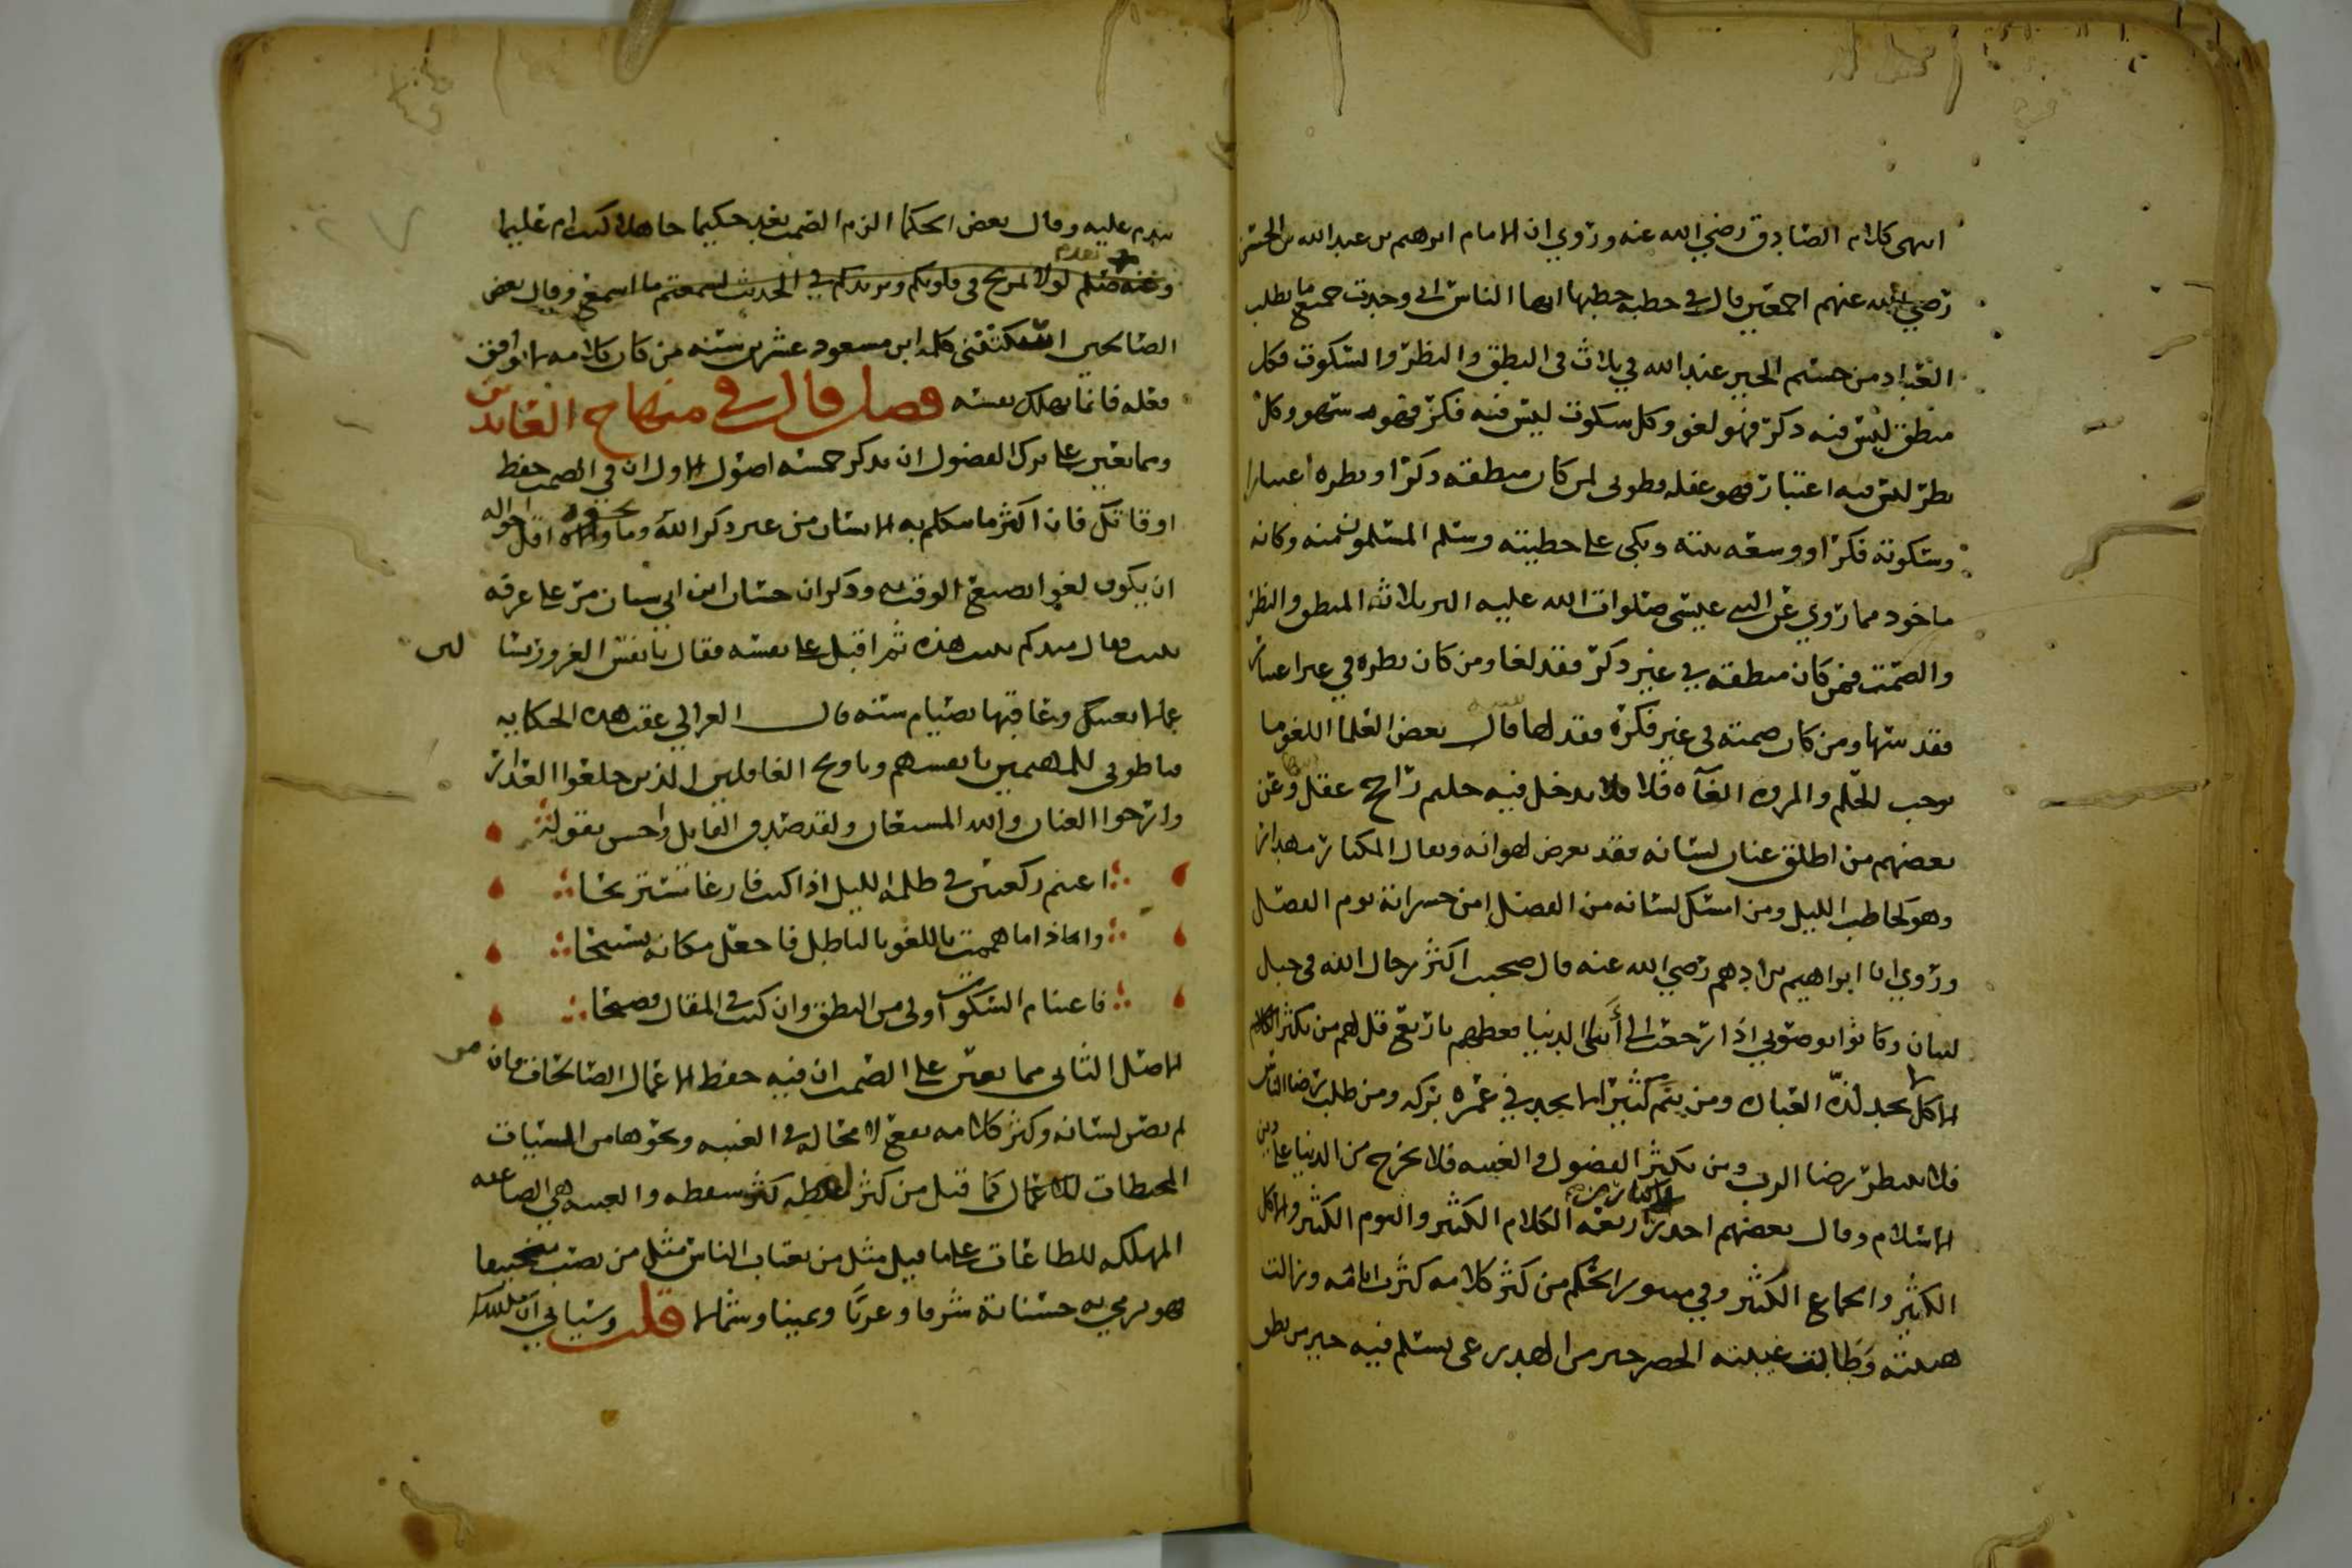 انتهى كلام الصادق رضي الله عنه وروي ان الامام ابرهيم بن عبد الله بن الحسن
رضي الله عنهم اجمعين قال في خطبة خطبها ايها الناس اني وجدت جميع ما يطلب
العباد من جسيم الخير عند الله في ثلاث في النطق والنظر والسكوت فكل
منطق ليس فيه ذكر فهو لغو وكل سكوت ليس فيه فكر فهو سهو وكل
نظر ليس فيه اعتبار فهو غفلة فطوبى لمن كان منطقه ذكرا ونظره اعتبارا
وسكوته فكرا ووسعه بيته وبكى على خطيته وسلم المسلمون منه وكانه
ماخوذ مما روي عن النبي عيسى صلوات الله عليه البر ثلاثة المنطق والنظر
والصمت فمن كان منطقه في غير ذكر فقد لغا ومن كان نظره في غير اعتبار
فقد سها ومن كان صمته في غير فكرة فقد لها قال بعض العلما اللغو ما
يوجب للحلم والمروة الغآه فلا يدخل فيه حليم راجح عقل وعن
بعضهم من اطلق عنان لسانه فقد تعرض لهوانه ويقال المكثار مهدار
وهو كحاطب الليل ومن امسك لسانه من الفضل امن خسرانه يوم الفصل
وروي ان ابراهيم بن ادهم رضي الله عنه قال صحبت اكثر رجال الله في جبل
لبنان وكانوا يوصوني اذا رجعت الى أبنا الدنيا فعظهم باربع قل لهم من يكثر الاكل
لا يجد لذة العبادة ومن ينم كثيرا لم يجد في عمره بركة ومن طلب رضا الناس
فلا ينتظر رضا الرب ومن يكثر الفضول والغيبه فلا يخرج من الدنيا على دين
الاسلام وقال بعضهم احذر اربعة الكلام الكثير والنوم الكثير والاكل
الكثير والجماع الكثير وفي منثور الحكم من كثر كلامه كثرت اثامه وزالت
هيبته وطالت غيبته الحصر خير من الهدر عي يسلم فيه خير من نطق
يندم عليه وقال بعض الحكما الزم الصمت تعد حكيما جاهلا كنت ام عليما
وعنه صلم لولا تمريج في قلوبكم وتزيدكم في الحديث لسمعتم ما اسمع وقال بعض
الصالحين اسكتتني كلمة ابن مسعود عشرين سنه من كان كلامه لا يوافق
فعله فانما يهلك نفسه فصل قال في منهاج العابدين
ومما يعين على ترك الفضول ان يذكر خمسه اصول الاول ان في الصمت حفظ
اوقاتك فان اكثر ما يتكلم به الانسان من غير ذكر الله وما والاه اقل احواله
ان يكون لغوا يضيع الوقت به وذكر ان حسان ابن ابي سنان مر على غرفه
بنيت فقال منذ كم بنيت هذه ثم اقبل على نفسه فقال يا نفس الغرور تسا لين
عما لا يعنيك وعاقبها بصيام سنه قال الغزالي عقب هذه الحكايه
فيا طوبى للمهتمين بانفسهم ويا ويح الغافلين الذين خلعوا العذار
وارخوا العنان والله المستعان ولقد صدق القايل واحسن بقوله
اغتنم ركعتين في ظلمة الليل اذا كنت فارغا مستريحا
واذا ما هممت باللغو بالباطل فاجعل مكانه تسبيحا
فاغتنام السكوت اولى من النطق وان كنت في المقال فصيحا
الاصل الثاني مما يعين على الصمت ان فيه حفظ الاعمال الصالحات فان من
لم يصن لسانه وكثر كلامه يقع لا محاله في الغيبه ونحوها من السيئات
المحبطات للاعمال كما قيل من كثر لغطه كثر سقطه والغيبه هي الصاعقه
المهلكه للطاعات على ما قيل مثل من يغتاب الناس مثل من نصب منجنيقا
فهو يرمي به حسناته شرقا وغربا ويمينا وشمالا قلت وسياتي ان